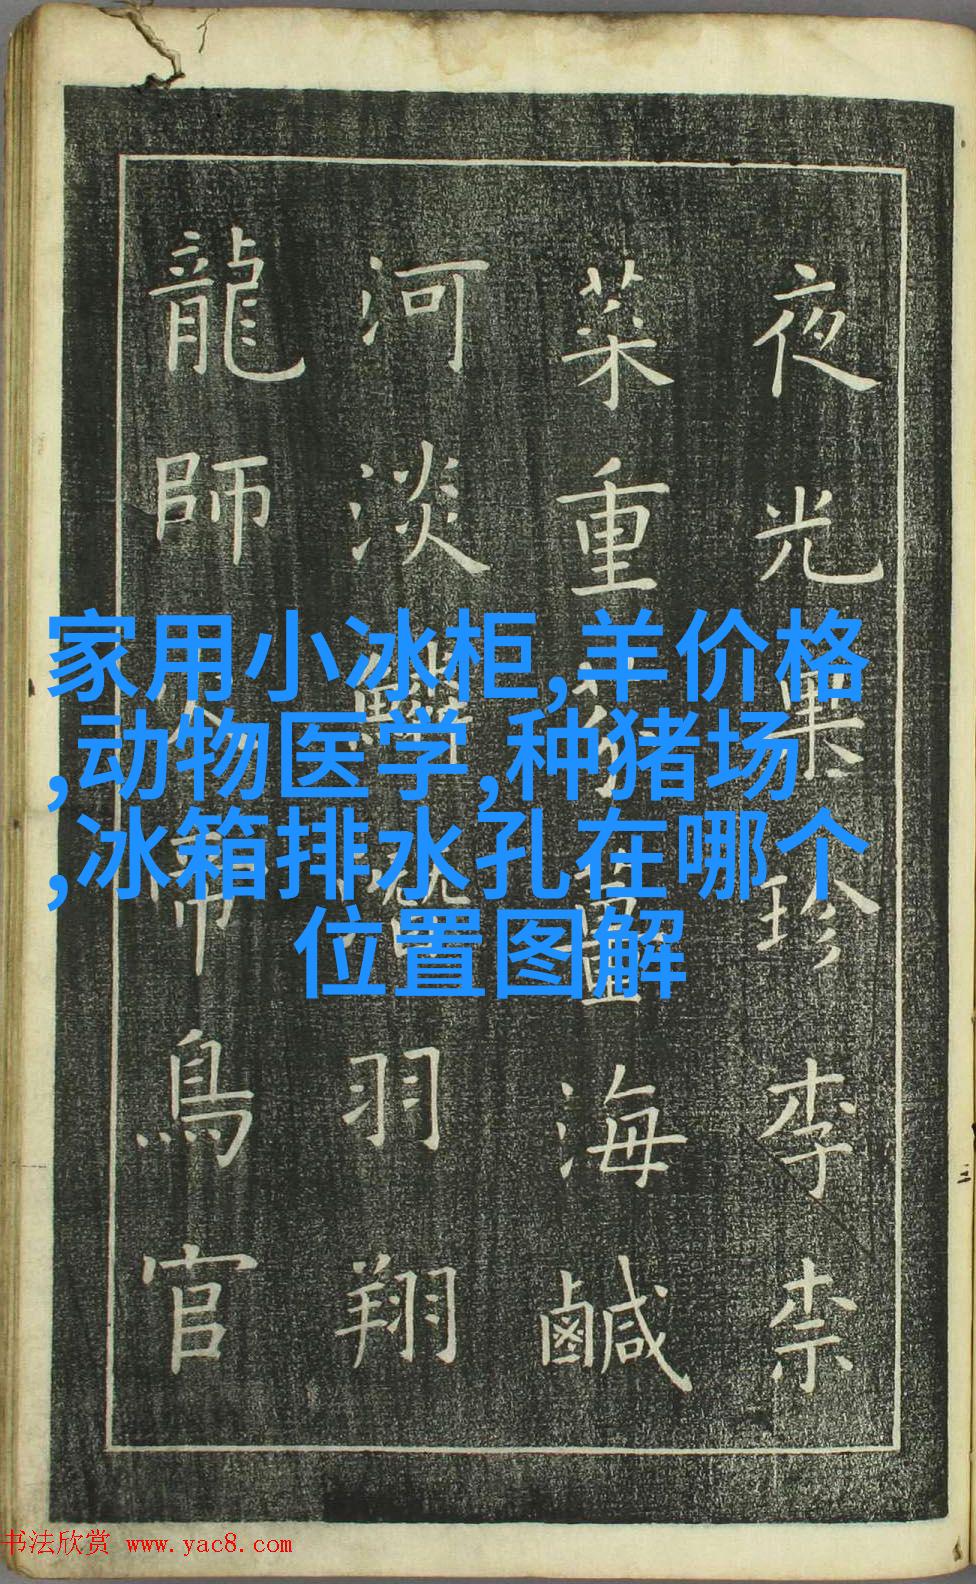 夜光果珍李柰
菜重芥薑海鹹
河淡鱗潛羽翔
龍師火帝鳥官
家用小冰柜,羊价格
,动物医学,种猪场
,冰箱排水孔在哪个
位置图解
书法欣赏 www.yac8.com